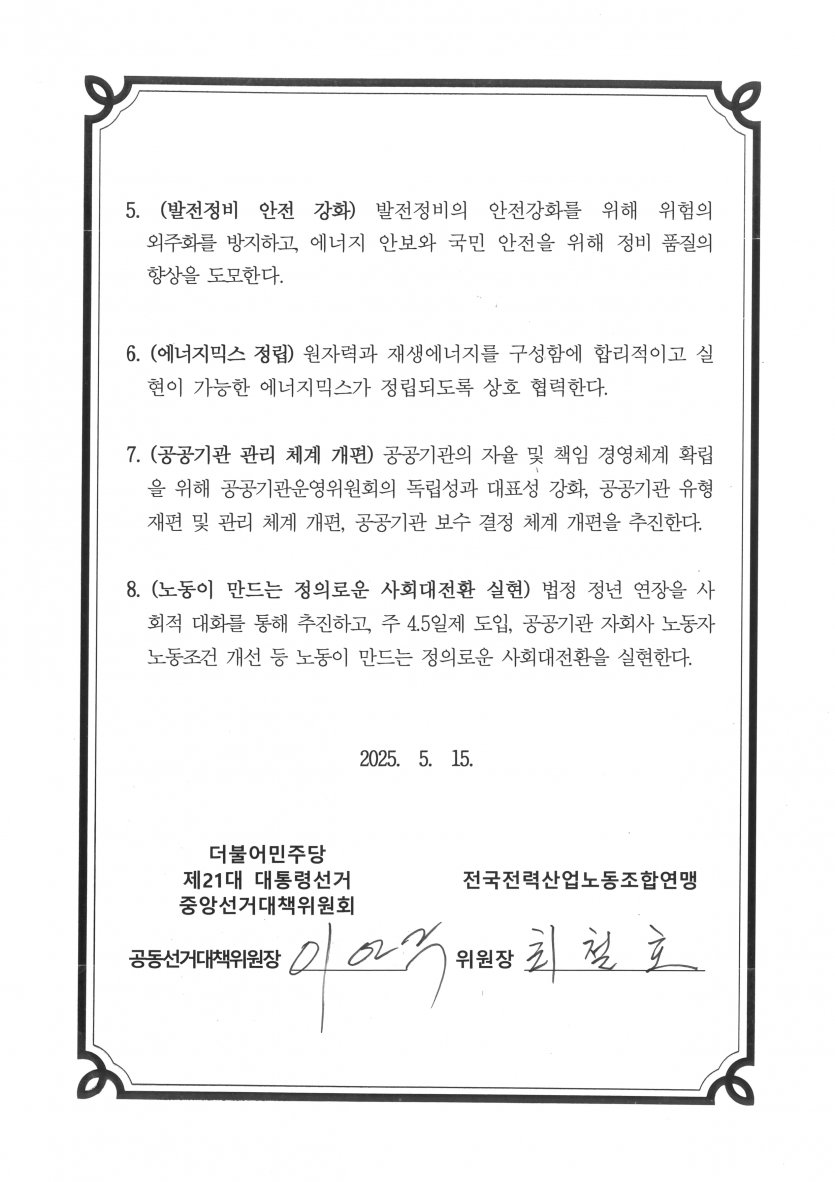 5. (발전정비 안전 강화) 발전정비의 안전강화를 위해 위험의
외주화를 방지하고, 에너지 안보와 국민 안전을 위해 정비 품질의
향상을 도모한다.
6. (에너지믹스 정립) 원자력과 재생에너지를 구성함에 합리적이고 실
현이 가능한 에너지믹스가 정립되도록 상호 협력한다.
7. (공공기관 관리 체계 개편) 공공기관의 자율 및 책임 경영체계 확립
을 위해 공공기관운영위원회의 독립성과 대표성 강화, 공공기관 유형
재편 및 관리 체계 개편, 공공기관 보수 결정 체계 개편을 추진한다.
8. (노동이 만드는 정의로운 사회대전환 실현) 법정 정년 연장을 사
회적 대화를 통해 추진하고, 주 4.5일제 도입, 공공기관 자회사 노동자
노동조건 개선 등 노동이 만드는 정의로운 사회대전환을 실현한다.
2025. 5. 15.
더불어민주당
제21대 대통령선거
중앙선거대책위원회
공동선거대책위원장
전국전력산업노동조합연맹
위원장 최철호